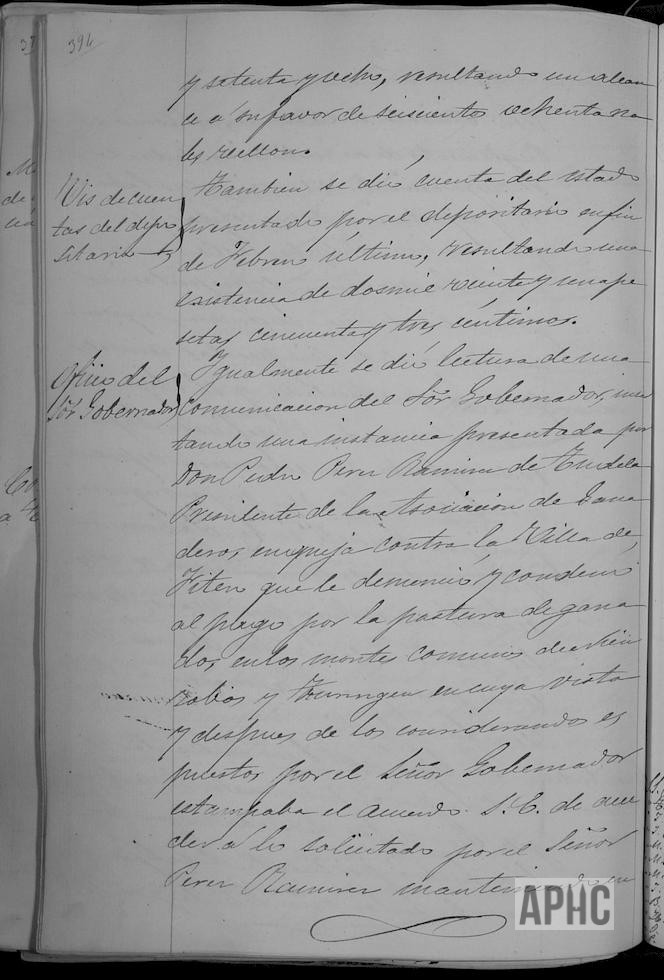 394
y setenta y ocho, resultando un alcan
ce á su favor de seiscientos ochenta rea
les vellon.
Vis de cuen
tas del depo
sitario
Tambien se dió cuenta del estado
presentado por el depositario en fin
de Febrero último, resultando una
existencia de dos mil veinte y una pe
setas cincuenta y tres céntimos.
Oficio del
Sõr Gobernador
Igualmente se dió lectura de una
comunicacion del Sõr Gobernador,
tando una instancia presentada por
Don Pedro Perez Ramirez de Tudela
Presidente de la Asociacion de Gana
deros en queja contra la Villa de
Fitero que le denunció y condenó
al pago por la pastura de gana
dos, en los montes comunes de
y en cuya vista
y despues de los considerandos es
puestos por el Señor Gobernador
estampaba el acuerdo S. E. de acce
der á lo solicitado por el Señor
Perez Ramirez manteniendo en
APHC